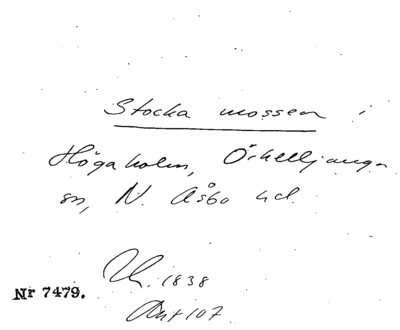 Stocka mossen i
Högaholm, Örkelljunga
sn, N. Åsbo hd.
Uh. 1838
Nr 7479.
Ant 107